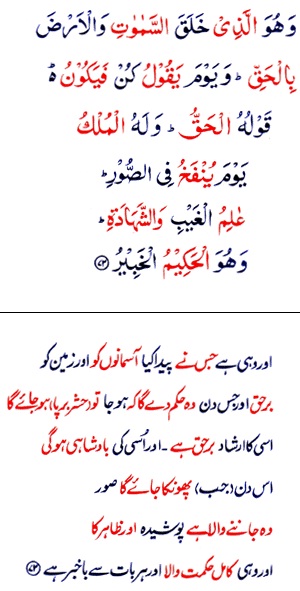 وَهُوَ الَّذِىْ خَلَقَ السَّمٰوٰتِ وَالْاَرْضَ
بِالْحَقِّ ؕ وَيَوْمَ يَقُوْلُ كُنْ فَيَكُوْنُ ۬ؕ
قَوْلُهُ الْحَقُّ ؕ وَلَهُ الْمُلْكُ
يَوْمَ يُنْفَخُ فِى الصُّوْرِ ؕ
عٰلِمُ الْغَيْبِ وَالشَّهَادَةِ ؕ
وَهُوَ الْحَكِيْمُ الْخَبِيْرُ ﴿۷۳﴾
اور وہی ہے جس نے پیدا کیا آسمانوں کو اور زمین کو
برحق اور جس دن وہ حکم دے گا کہ ہو جا تو (حشر برپا) ہو جائے گا
اسی کا ارشاد برحق ہے ۔ اور اُسی کی بادشاہی ہو گی
اس دن (جب) پھونکا جائے گا صور
وہ جاننے والا ہے پوشیدہ اور ظاہر کا
اور وہی کامل حکمت والا اور ہر بات سے باخبر ہے ﴿۷۳﴾